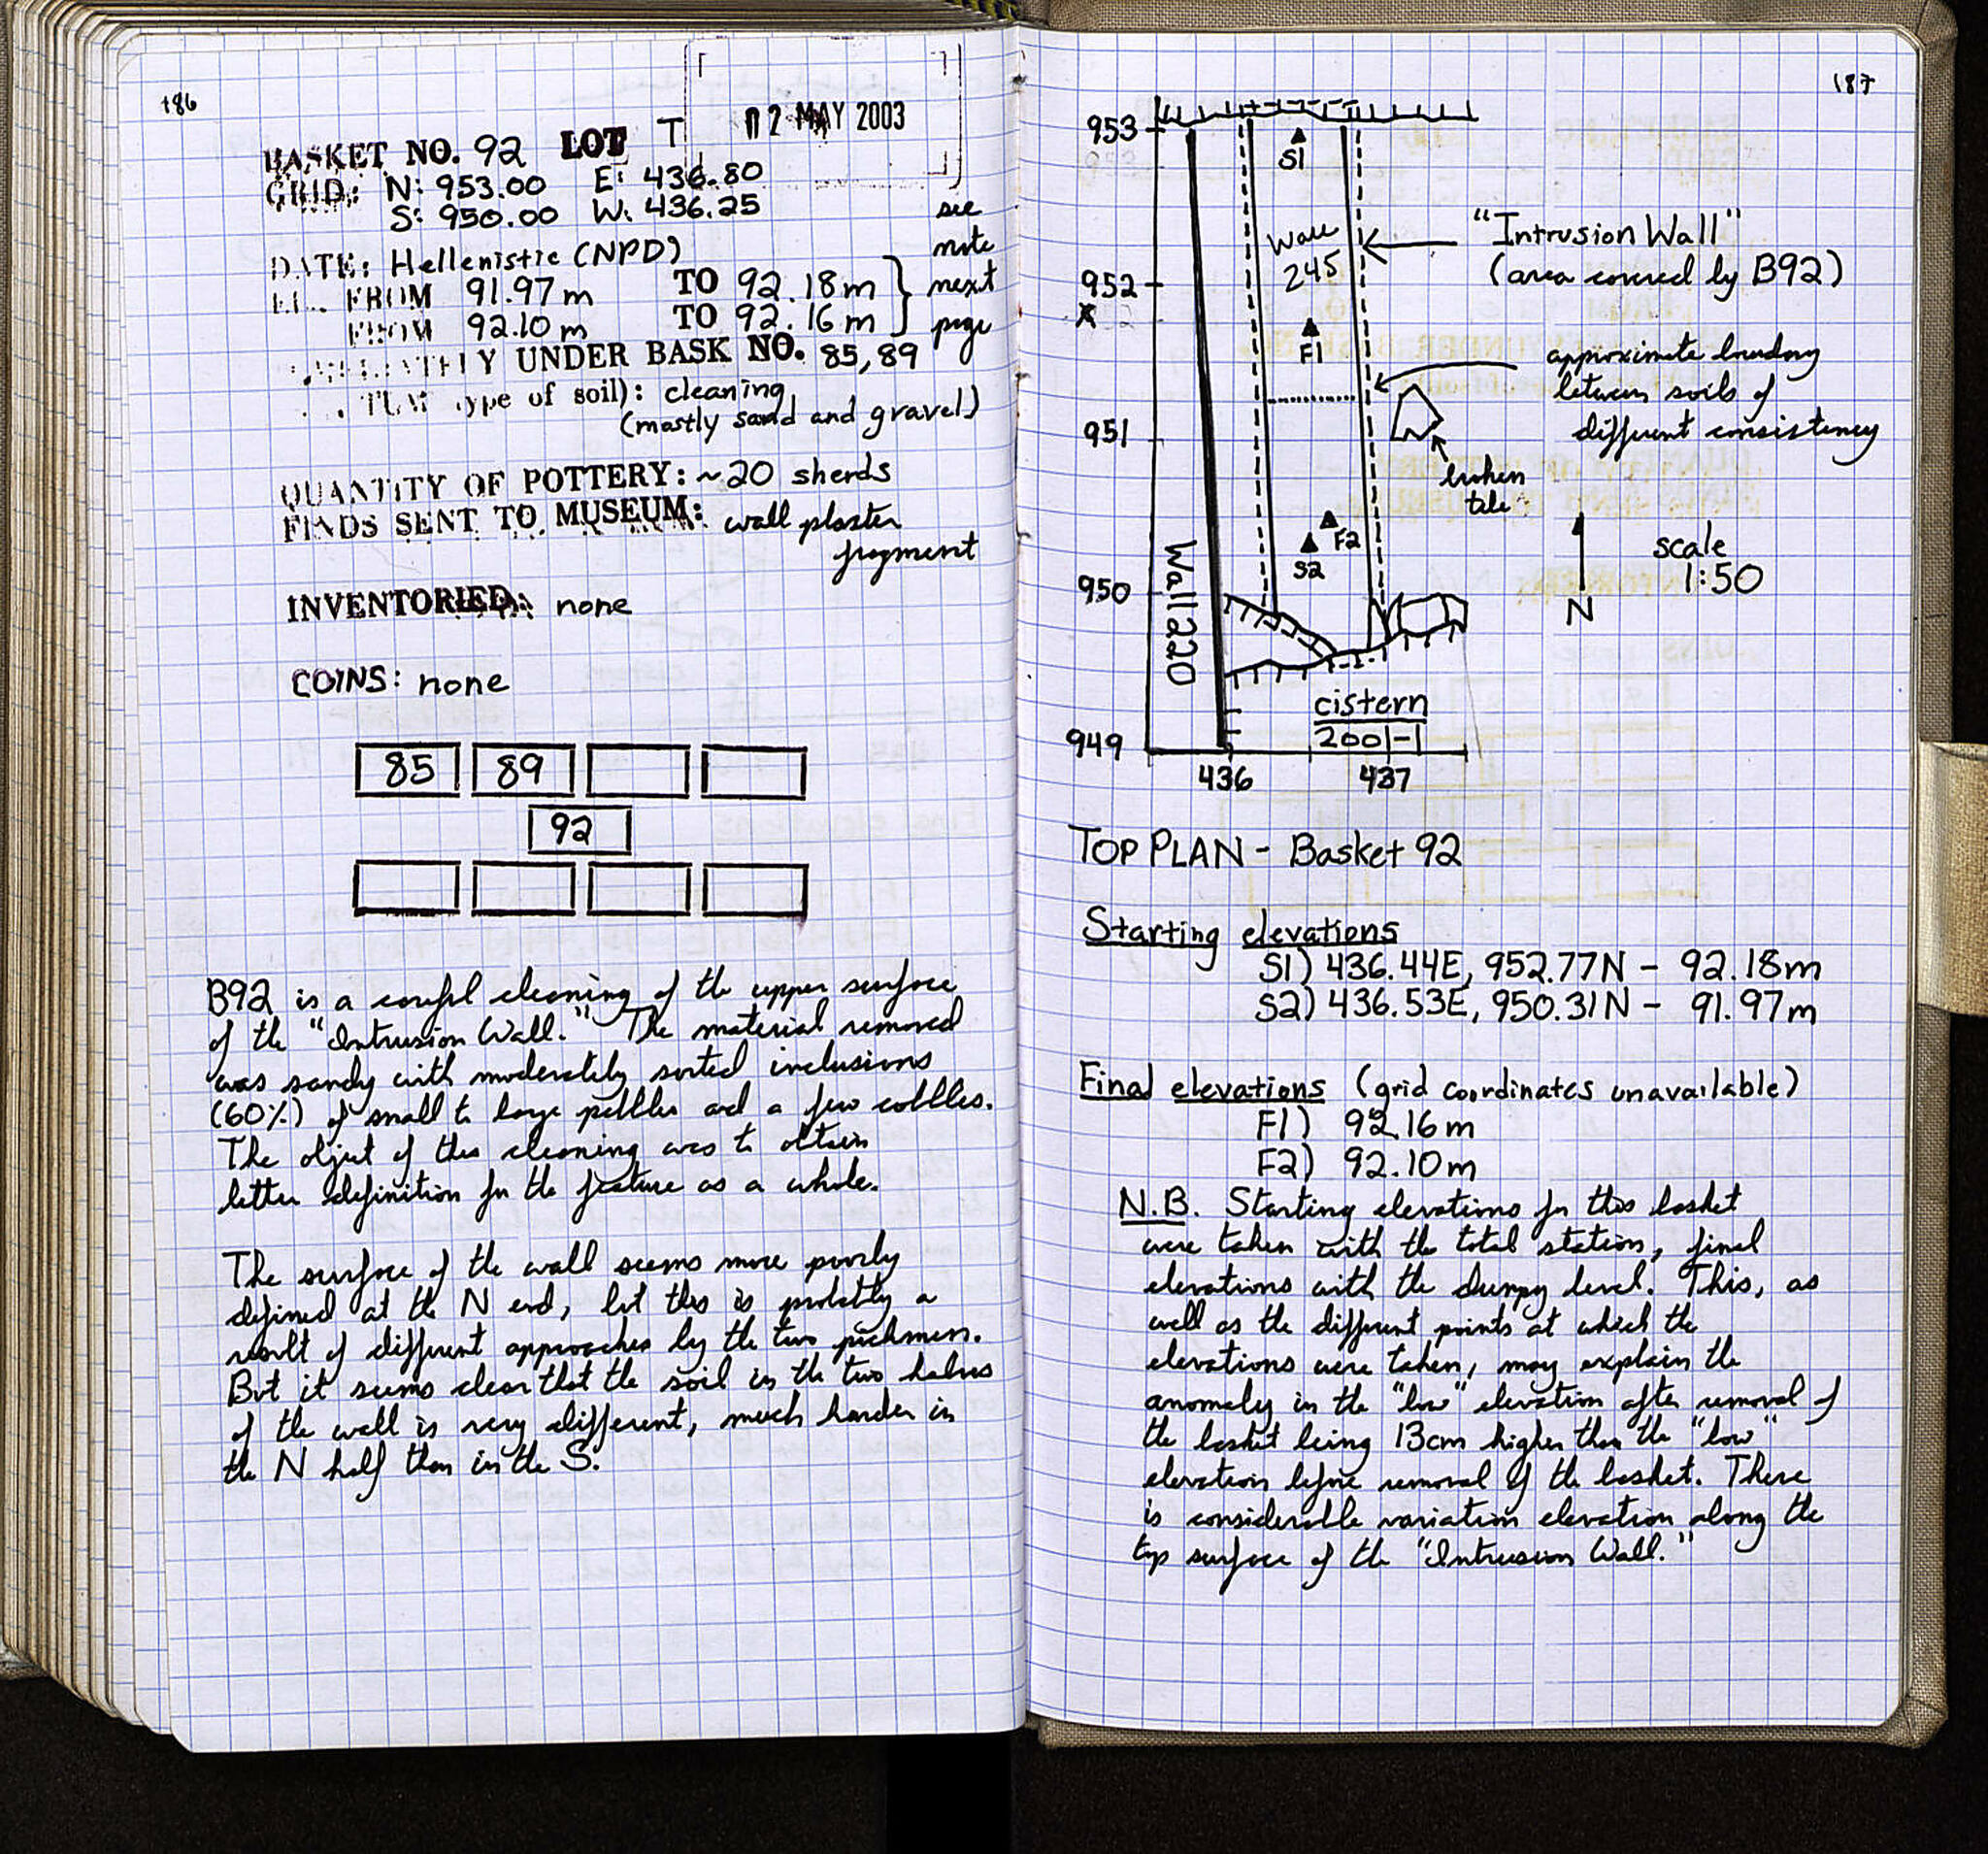 186
02 MAY 2003
BASKET NO. 92 LOT T
GRID: N: 953.00 E: 436.80
S: 950.00 W: 436.25
DATE: Hellenistic (NPD)
EL. FROM 91.97m TO 92.18m
FROM 92.10m TO 92.16m
see
note
next
page
UNDER BASK NO. 85, 89
type of soil): cleaning
(mostly sand and gravel)
QUANTITY OF POTTERY: ~20 sherds
FINDS SENT TO MUSEUM: wall plaster
fragment
INVENTORIED: none
COINS: none
85 89
92
B92 is a careful cleaning of the upper surface
of the "Intrusion Wall." The material removed
was sandy with moderately sorted inclusions
(60%) of small to large pebbles and a few cobbles.
The object of this cleaning was to obtain
better definition for the feature as a whole.
The surface of the wall seems more poorly
defined at the N end, but this is probably a
result of different approaches by the two pickmen.
But it seems clear that the soil in the two halves
of the wall is very different, much harder in
the N half than in the S.
187
953
S1
Wall
245
"Intrusion Wall"
(area covered by B92)
952
F1
approximate boundary
between soils of
different consistency
951
broken
tile
F2
S2
Wall 220
scale
1:50
N
950
cistern
2001-1
949
436 437
TOP PLAN - Basket 92
Starting elevations
S1) 436.44E, 952.77N - 92.18m
S2) 436.53E, 950.31N - 91.97m
Final elevations (grid coordinates unavailable)
F1) 92.16m
F2) 92.10m
N.B. Starting elevations for this basket
were taken with the total station, final
elevations with the dumpy level. This, as
well as the different points at which the
elevations were taken, may explain the
anomaly in the "low" elevation after removal of
the basket being 13cm higher than the "low"
elevation before removal of the basket. There
is considerable variation elevation along the
top surface of the "Intrusion Wall."